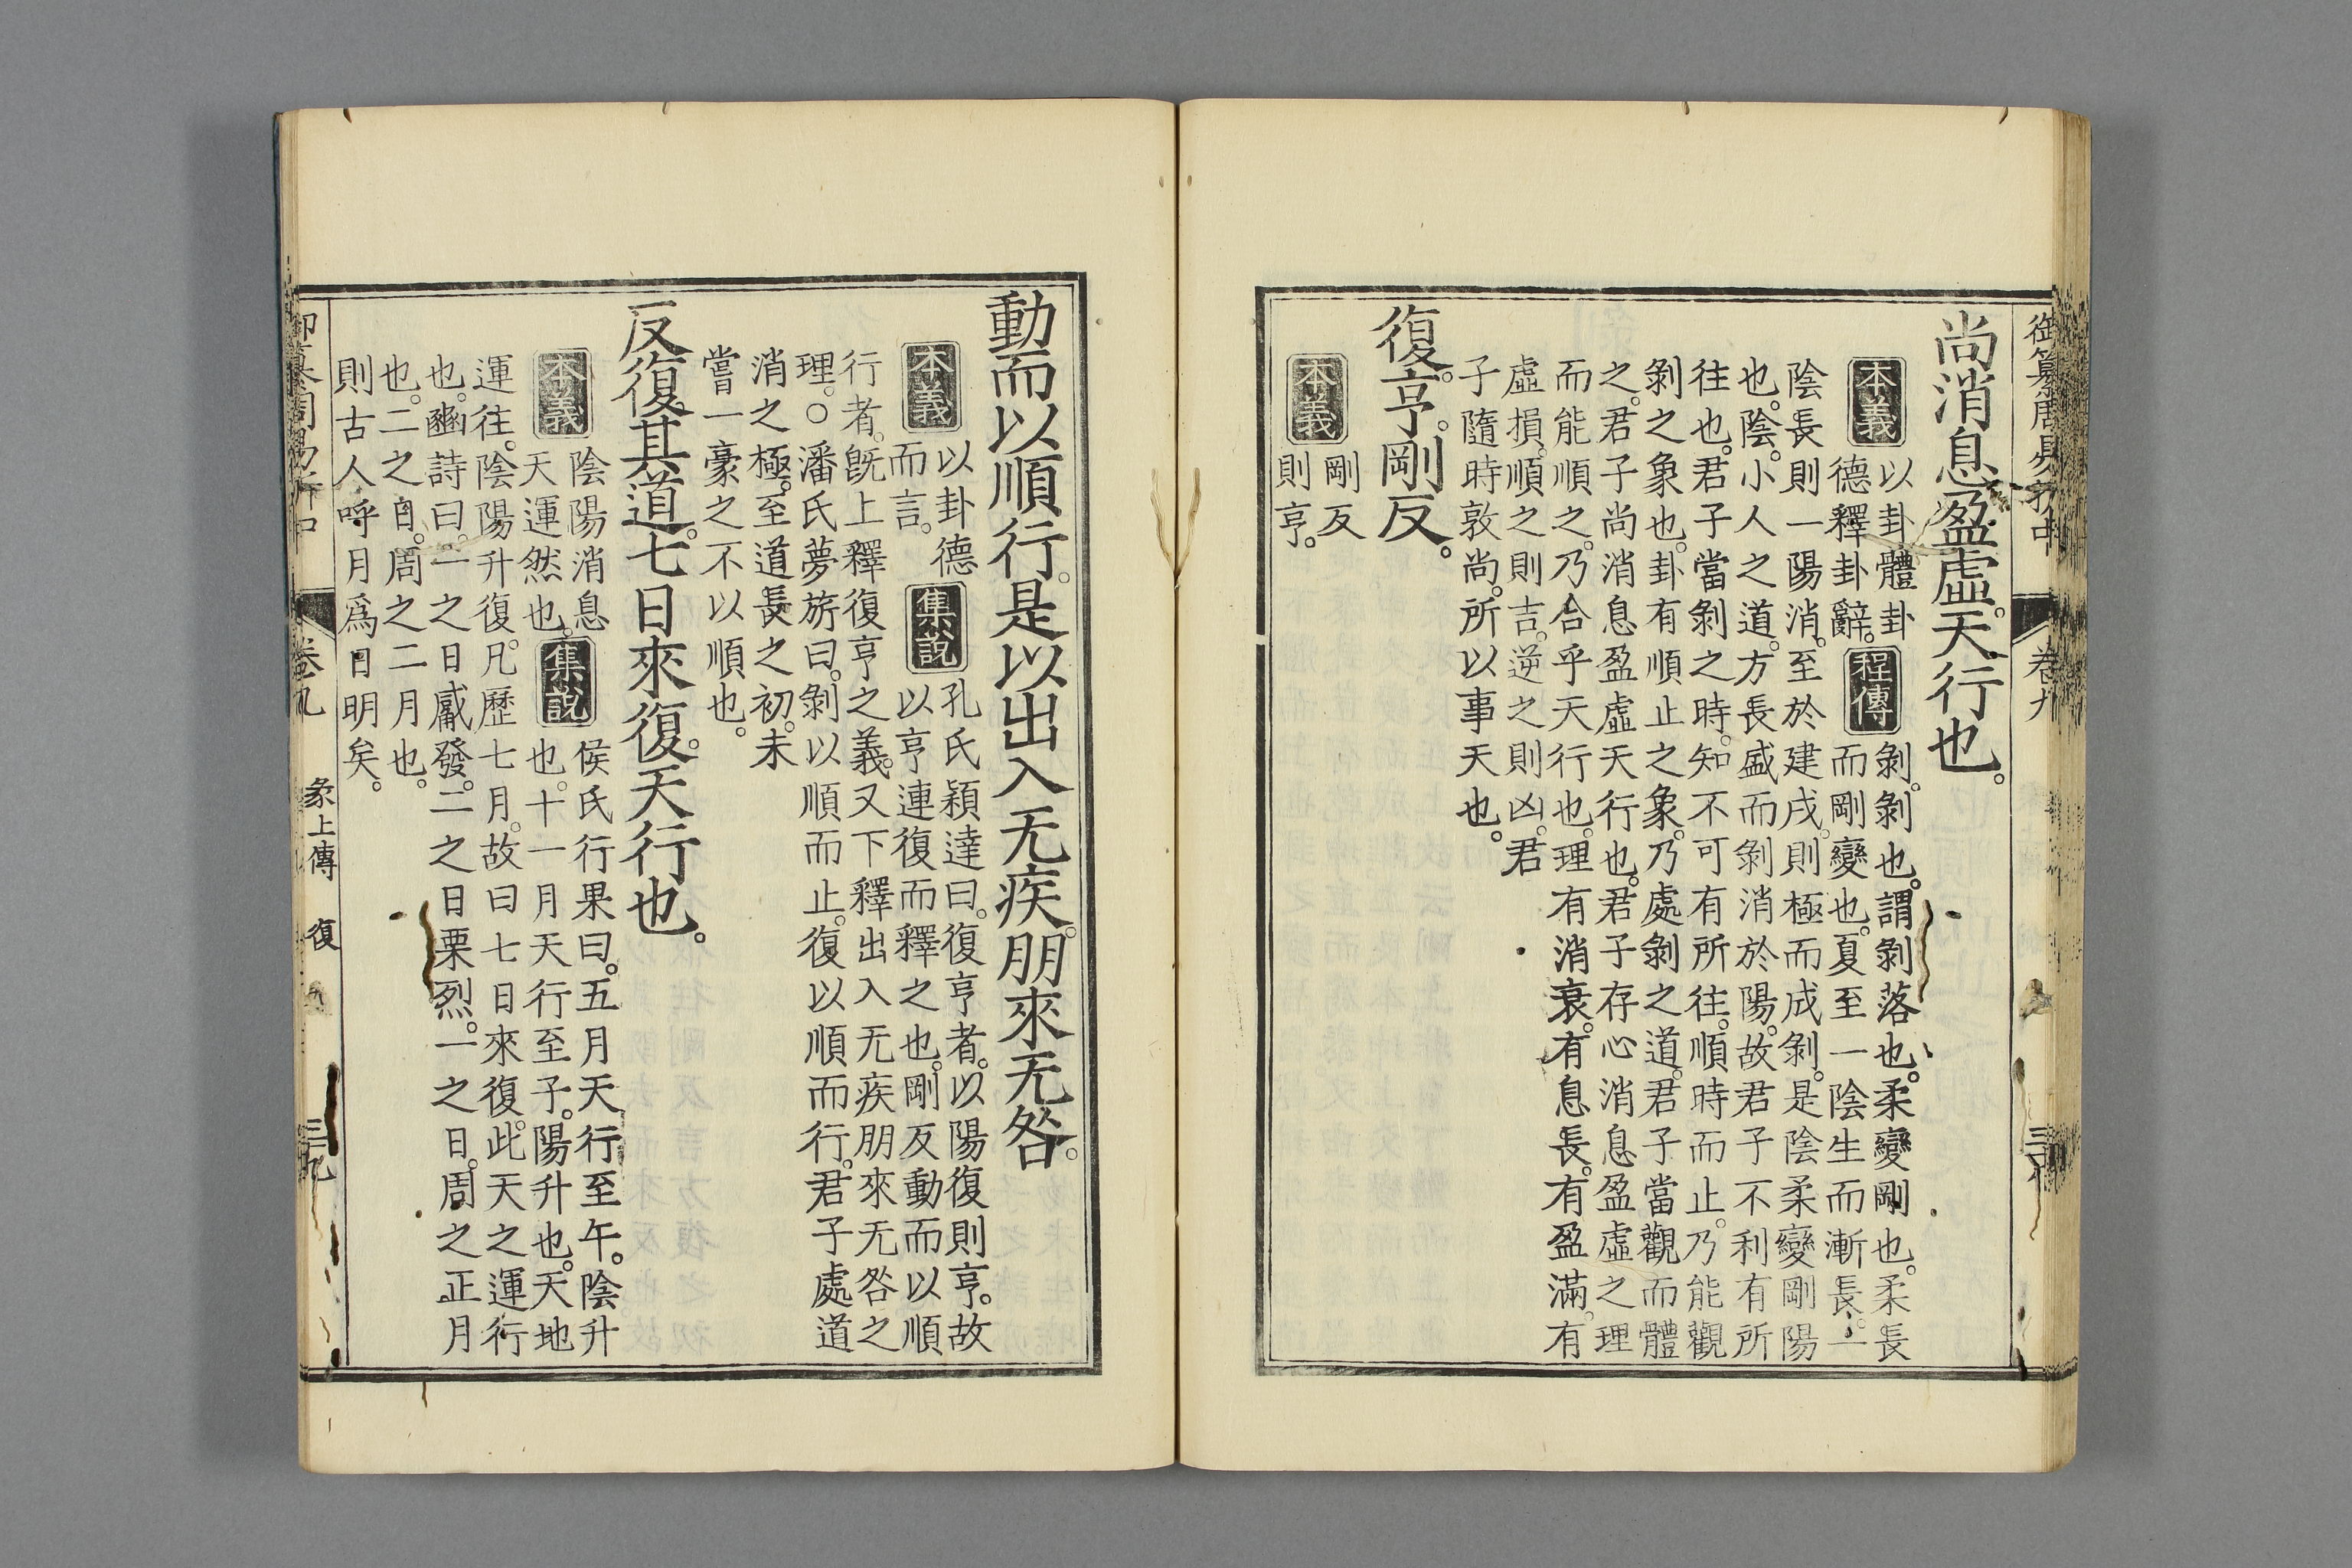 御纂周易折中 卷九 三八
尚消息盈虛。天行也。
本義 以卦體卦德釋卦辭。 程傳 剝。剝也。謂剝落也。柔變剛也。柔長
而剛變也。夏至一陰生而漸長。一
陰長則一陽消。至於建戌。則極而成剝。是陰柔變剛陽
也。陰。小人之道。方長盛而剝消於陽。故君子不利有所
往也。君子當剝之時。知不可有所往。順時而止。乃能觀
剝之象也。卦有順止之象。乃處剝之道。君子當觀而體
之。君子尚消息盈虛天行也。君子存心消息盈虛之理
而能順之。乃合乎天行也。理有消衰。有息長。有盈滿。有
虛損。順之則吉。逆之則凶。君
子隨時敦尚。所以事天也。
復。亨。剛反。
本義 剛反
則亨。
動而以順行。是以出入无疾。朋來无咎。
本義 以卦德而言。 集說 孔氏穎達曰。復亨者。以陽復則亨。故
以亨連復而釋之也。剛反動而以順
行者。旣上釋復亨之義。又下釋出入无疾朋來无咎之
理。○潘氏夢旂曰。剝以順而止。復以順而行。君子處道
消之極。至道長之初。未
嘗一豪之不以順也。
反復其道。七日來復。天行也。
本義 陰陽消息天運然也。 集說 侯氏行果曰。五月天行至午。陰升
也。十一月天行至子。陽升也。天地
運往。陰陽升復。凡歷七月。故曰七日來復。此天之運行
也。豳詩曰。一之日觱發。二之日栗烈。一之日。周之正月
也。二之日。周之二月也。
則古人呼月爲日明矣。
御纂周易折中 卷九 彖上傳 復 三九